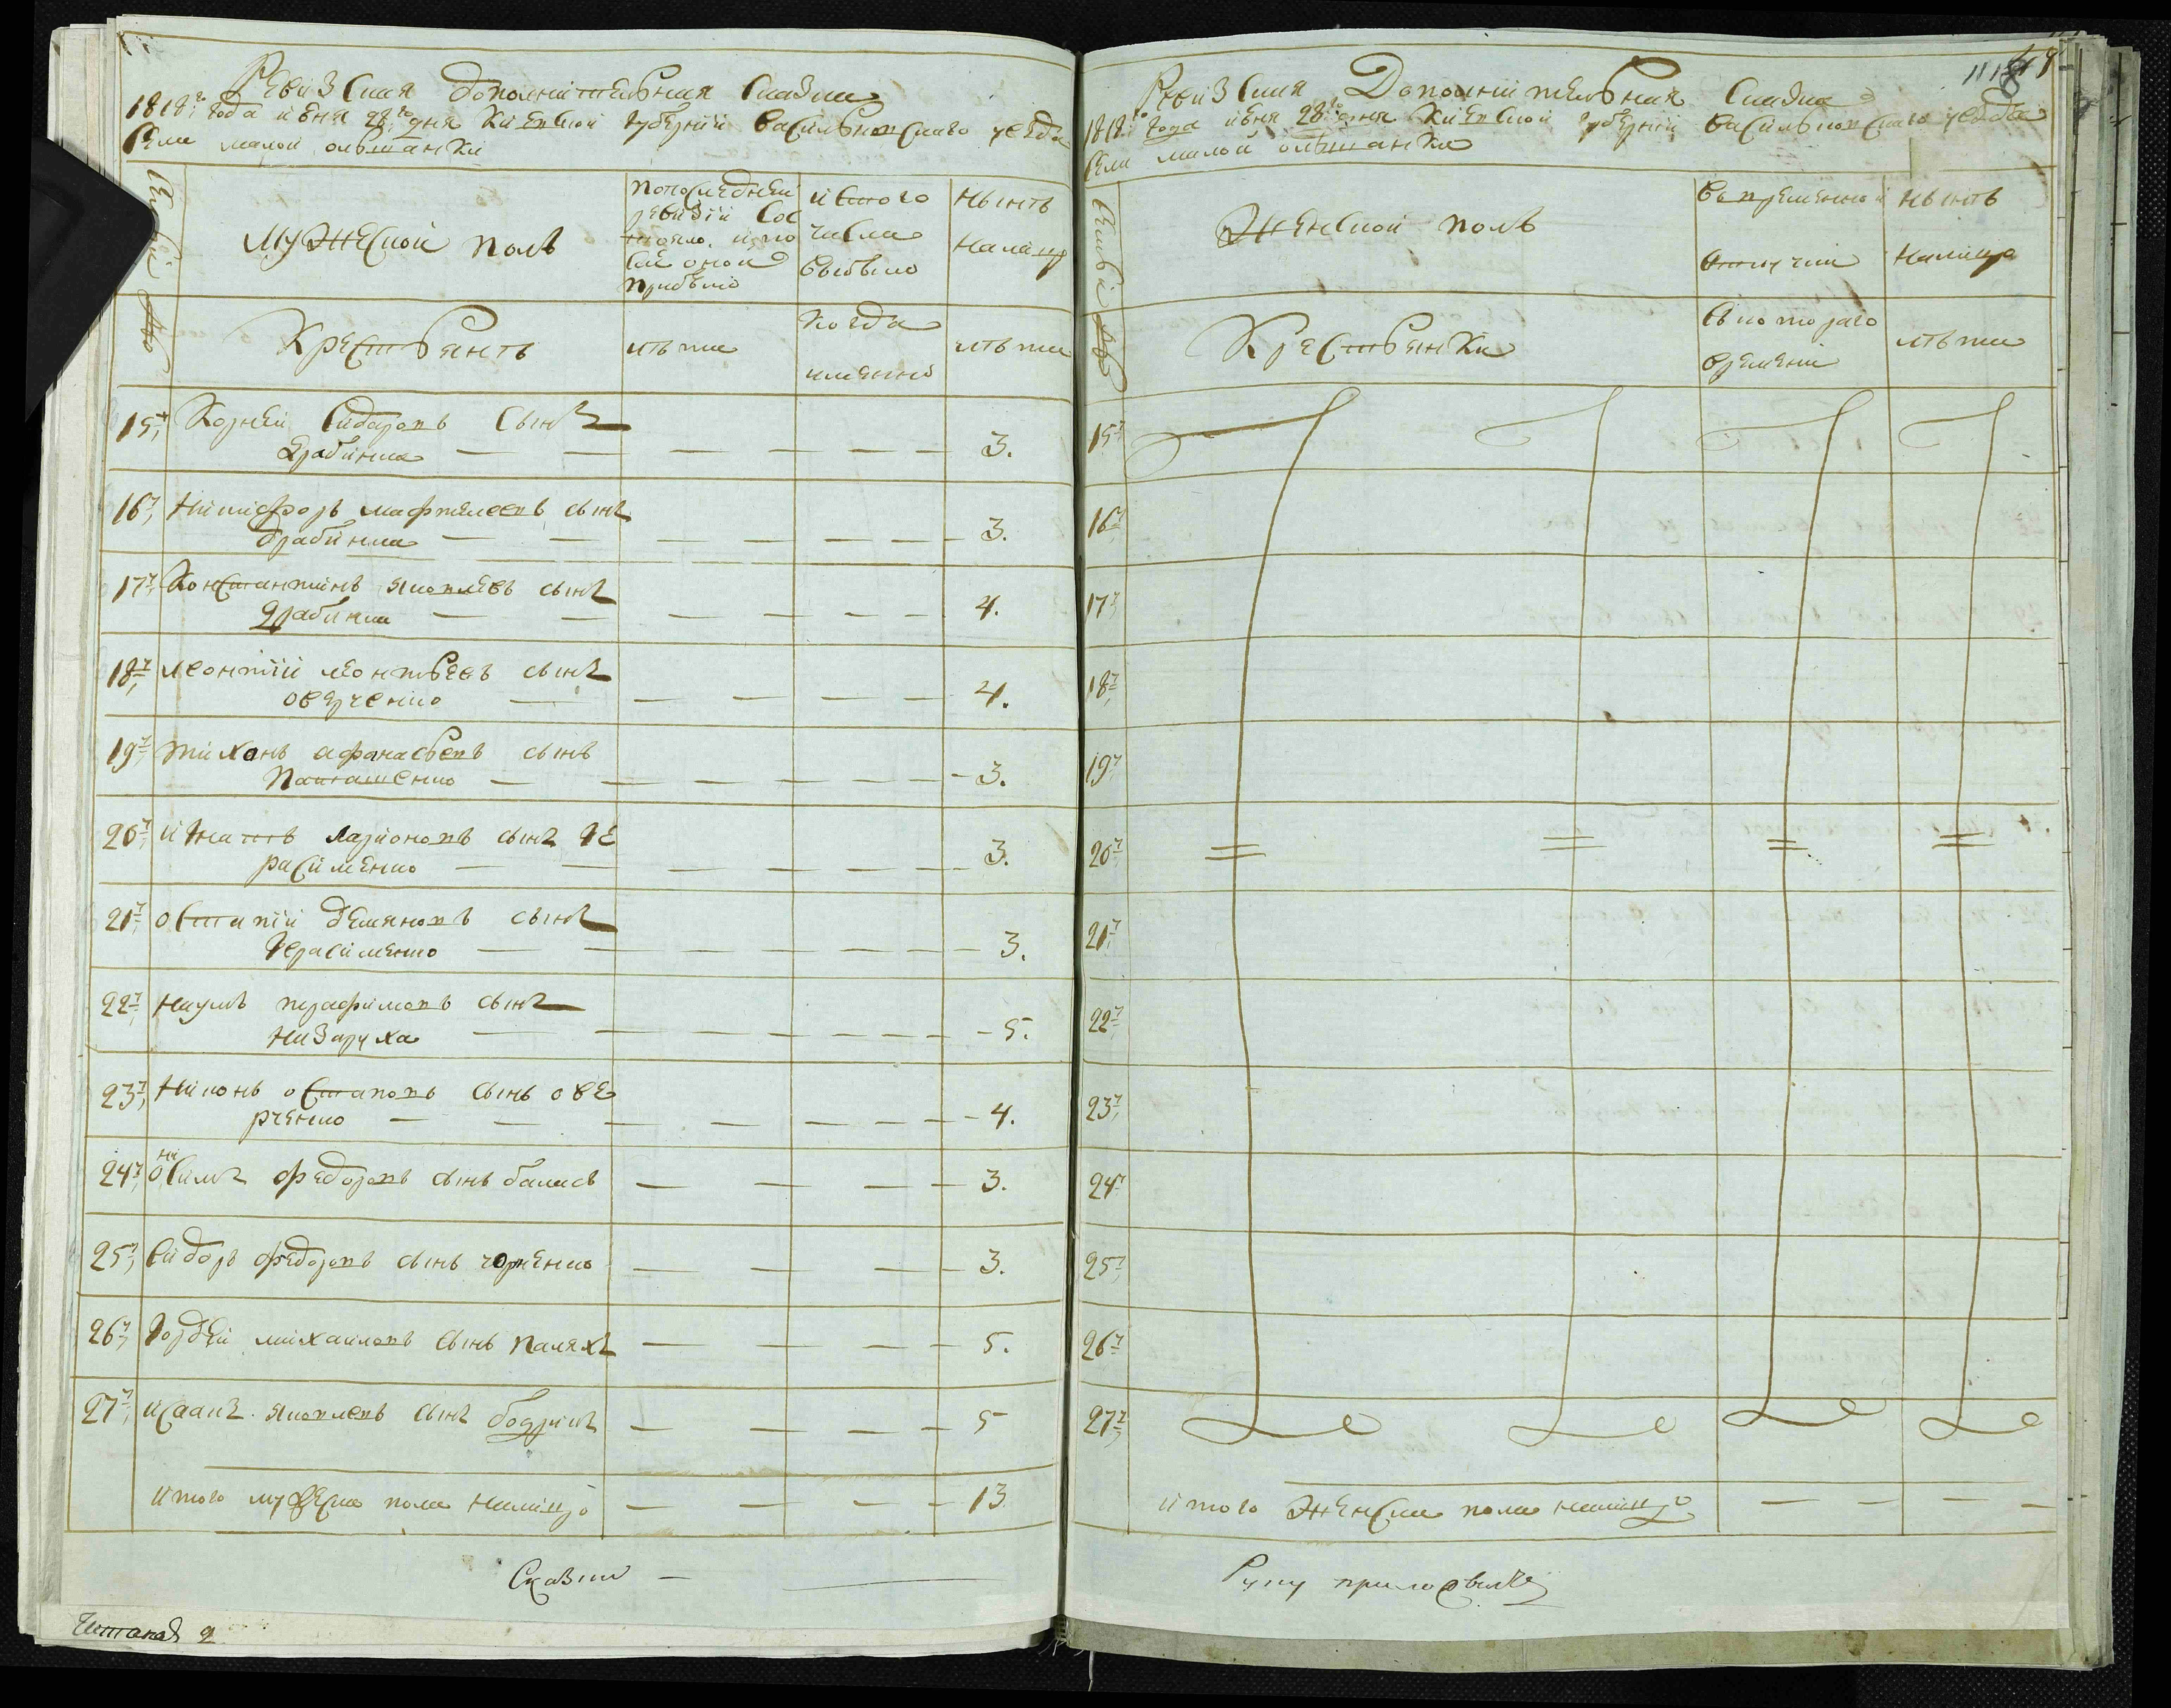 Ревизская дополнительная сказка
1818го года июня 28го дня Киевской губернии васильковскаго уезда
села малой ольшанки
Семьи
Мужеской полъ
По последней ревизии состояло и после оной прибыло
Из того числа выбыло
Ныне налицо
Крестьянѣ
лѣта
когда именно
лѣта
15, Корней Сидоровъ сынъ
драбинка — — — — — — 3.
16, никифоръ мафтееевъ сынъ
драбинка — — — — — — 3.
17, Константинъ яковлевъ сынъ
драбинка — — — — — — 4.
18, леонтий леонтьевъ сынъ
оверченко — — — — — 4.
19, тихонъ афонасьевъ сынъ
Панташенко — — — — — — 3.
20, Игнатъ ларионовъ сынъ Ге
расименко — — — — — — 3.
21, остапий демяновъ сынъ
Герасименко — — — — — — 3.
22, наумъ трафимовъ сынъ
назаруха — — — — — — 5.
23, никонъ остаповъ сынъ ове
рченко — — — — — — 4.
24, Онисимъ федоровъ сынъ баласъ — — — — 3.
25, Сидоръ федоровъ сынъ чорненко — — — — 3.
26, Гордей михайловъ сынъ Паляхъ — — — — 5.
27, исаакъ яковлевъ сынъ бодрикъ — — — — 5
Итого мужеска пола налицо — — — — 13
Сказки —
Читалъ 2
118
19
Ревизская Дополнительная Сказка
1818го года июня 28го дня Киевской губернии васильковскаго уезда
села малой ольшанки
Семьи
Женской полъ
Во временной отлучки
Ныне налицо
Крестьянки
С котораго времени
лѣта
15
16
17
18
19
20
21
22
23
24
25
26
27
Итого женска пола налицо — — — —
Руку приложилъ